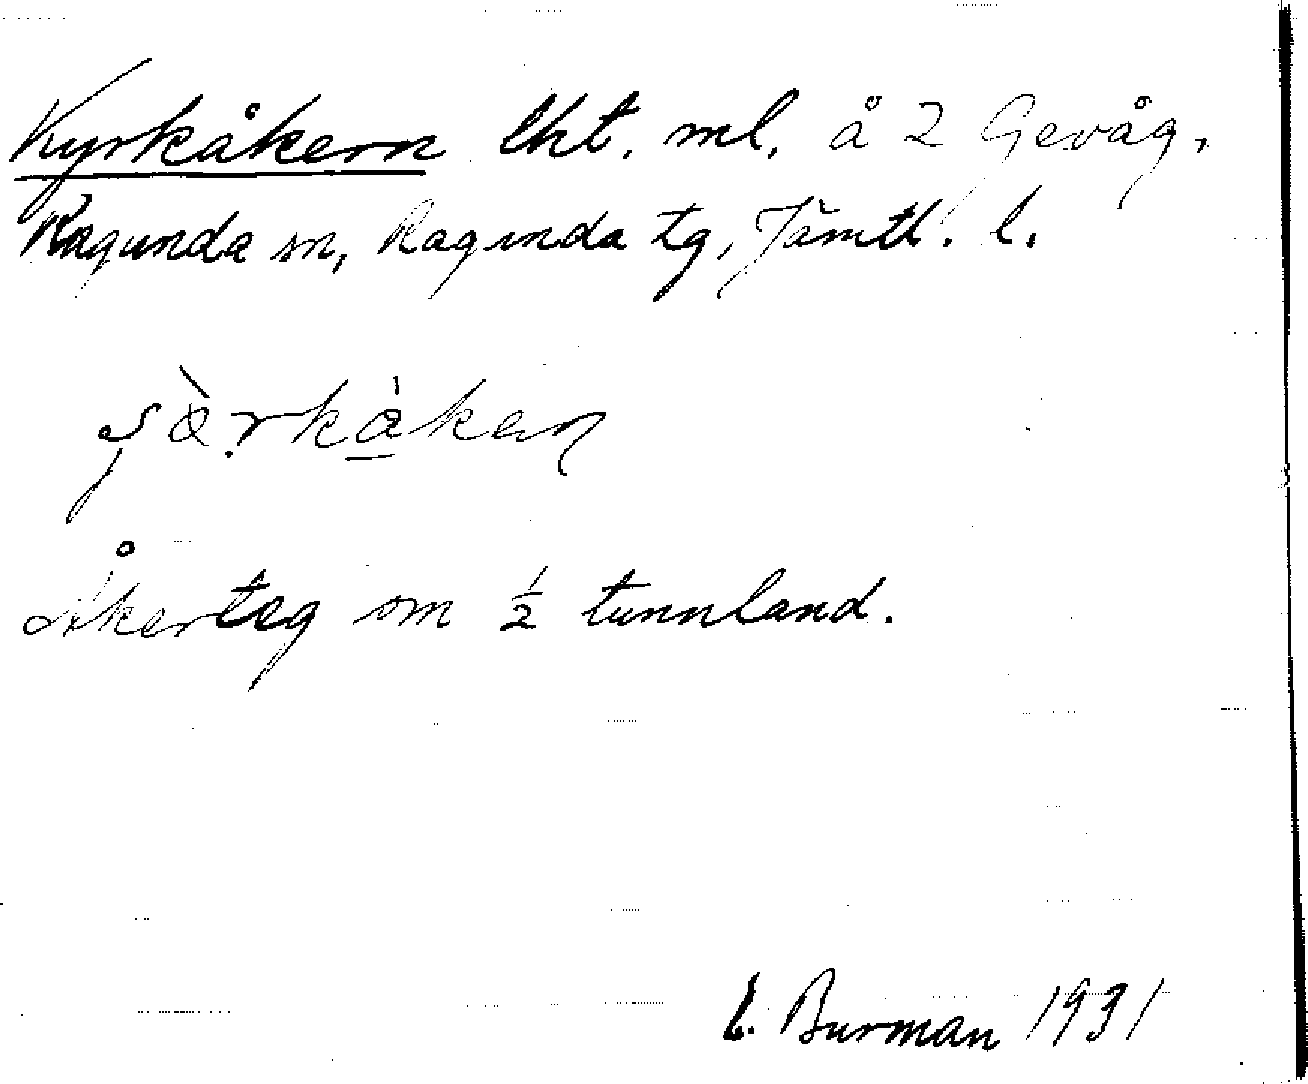 Kyrkåkern lht. ml. å 2 Gevåg,
Ragunda sn, Ragunda tg, Jämtl. l.
Åkerteg om ½ tunnland.
E. Burman 1931